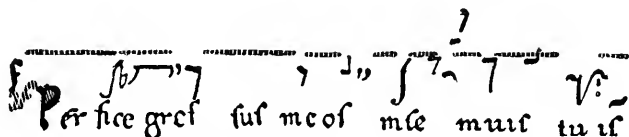 Per fice greſ ſuſ me oſ inſe mitiſ tu iſ